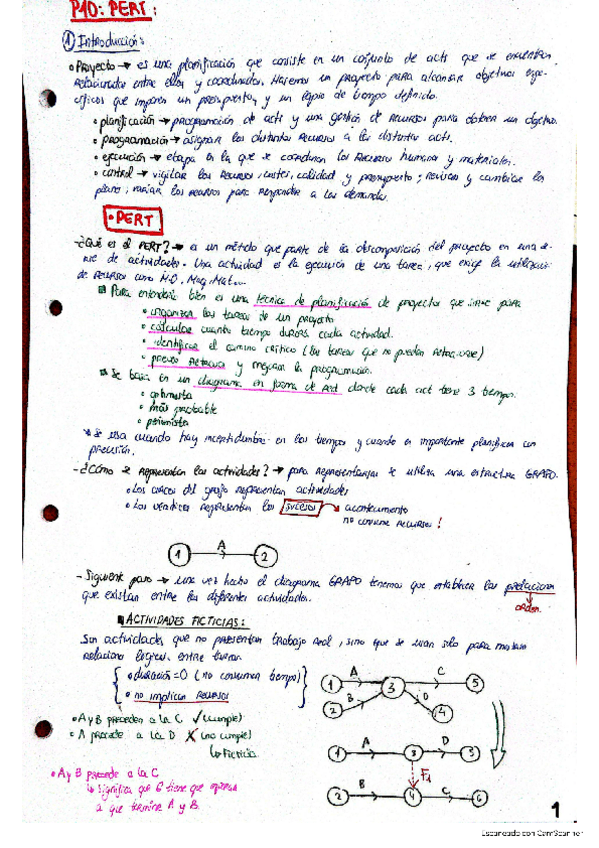 P10: PERT:
① Introducción:
• Proyecto → es una planificación que consiste en un conjunto de acts que se encuentran
relacionadas entre ellas y coordinadas. Hacemos un proyecto para alcanzar objetivos espe-
cíficos que imponen un presupuesto, y un lapso de tiempo definido.
• planificación → programación de acts y una gestión de recursos para obtener un objetivo.
• programación → asignar los distintos recursos a las distintas acts.
• ejecución → etapa en la que se coordinan los recursos humanos y materiales.
• control → vigilar los recursos, costes, calidad y presupuesto; revisar y cambiar los
plano; variar los recursos para responder a las demandas.
• PERT
- ¿Qué es el PERT? → es un método que parte de la descomposición del proyecto en una se-
rie de actividades. Una actividad es la ejecución de una tarea, que exige la utilización
de recursos como M.O, Maq, Mat...
Para entenderlo bien es una técnica de planificación de proyectos que sirve para
• organizar las tareas de un proyecto
• calcular cuanto tiempo durará cada actividad.
• identificar el camino crítico (las tareas que no pueden retrasarse)
• prever retrasos y mejorar la programación.
Se basa en un diagrama en forma de red donde cada act tiene 3 tiempos.
• optimista
• más probable
• pesimista
* Se usa cuando hay incertidumbre en los tiempos y cuando es importante planificar con
precisión.
- ¿Cómo se representan las actividades? → para representarlas se utiliza una estructura GRAFO.
• Los arcos del grafo representan actividades
• Los vértices representan los sucesos → acontecimiento
no consume recursos!
1 A 2
- Siguiente paso → una vez hecho el diagrama GRAFO tenemos que establecer las prelaciones
que existan entre las diferentes actividades.
orden.
ACTIVIDADES FICTICIAS:
Son actividades que no presentan trabajo real, sino que se usan solo para mostrar
relaciones lógicas entre tareas.
• duración = 0 (no consumen tiempo)
• no implican recursos
1 A 3 C 5
2 B D 4
• A y B preceden a la C ✓ (cumple)
• A precede a la D ✗ (no cumple)
↳ Ficticia
1 A 3 D 5
F1
• A y B precede a la C
↳ Significa que C tiene que esperar
a que termine A y B.
2 B 4 C 6
1
Escaneado con CamScanner